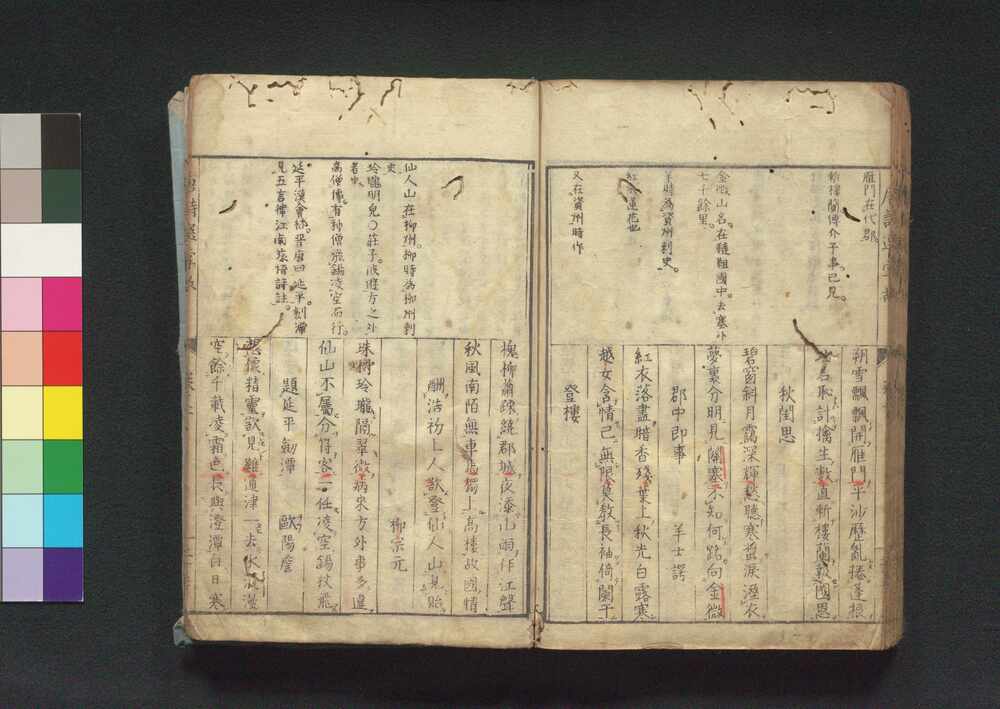 雁門在代郡。
斬樓蘭傅介子事。已見。
金微山名。在韃靼國中。去塞外
七千餘里。
羊時為資州刺史。
紅衣蓮花也
又在資州時作
朝雪飄飄開雁門平沙歷亂捲蓬根
功名恥計擒生數直斬樓蘭報國恩
秋閨思
碧窗斜月藹深輝愁聽寒螿淚濕衣
夢裏分明見關塞不知何路向金微
郡中即事 羊士諤
紅衣落盡暗香殘葉上秋光白露寒
越女含情已無限莫教長袖倚闌干
登樓
仙人山在柳州。柳時為柳州刺
史。
玲瓏明皃〇莊子。彼遊方之外
者也。
高僧傳。有神僧飛錫凌空而行。
延平 延平劍潭
見五言律江南旅情詩註。
槐柳蕭疎繞郡城夜添山雨作江聲
秋風南陌無車馬獨上高樓故國情
酬浩初上人欲登仙人山見貽
柳宗元
珠樹玲瓏隔翠微病來方外事多違
仙山不屬分符客一任凌空錫杖飛
題延平劍潭 歐陽詹
想像精靈欲見難通津一去水漫漫
空餘千載凌霜色長與澄潭白日寒